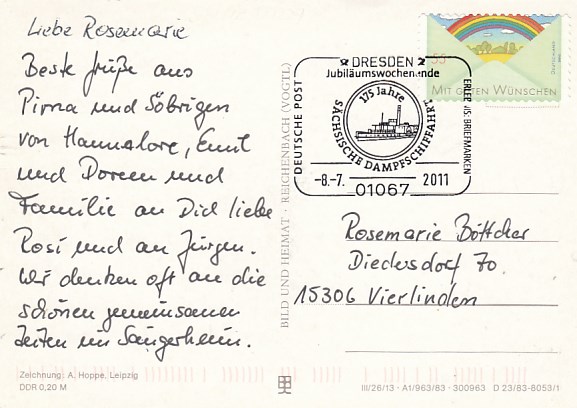 Liebe Rosemarie
Beste Grüße aus
Pirna und Söbrigen
von Hannelore, Emil
und Doreen und
Familie an Dich liebe
Rosi und an Jürgen.
Wir denken oft an die
schönen gemeinsamen
Zeiten im Sängerheim.
Zeichnung: A. Hoppe, Leipzig
DDR 0,20 M
BILD UND HEIMAT · REICHENBACH (VOGTL)
DRESDEN 2
Jubiläumswochenende
DEUTSCHE POST
ERLEBNIS: BRIEFMARKEN
175 Jahre
SÄCHSISCHE DAMPFSCHIFFAHRT
-8.-7. 2011
01067
55
MIT GUTEN WÜNSCHEN
Rosemarie Böttcher
Diedersdorf 70
15306 Vierlinden
III/26/13 - A1/963/83 - 300963 D 23/83-6053/1